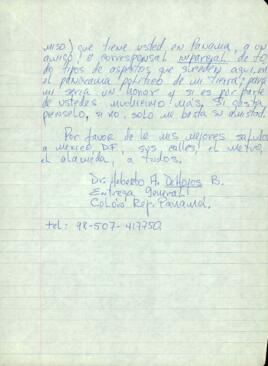 miso) que tiene usted en Panama, a un
amigo, o corresponsal imparcial de to-
do tipos de aspectos que suceden aqui, en
el panorama politico de mi tierra, para
mi seria un honor y si es por parte
de ustedes muchisimo más, si gusta
penselo, si no, solo me basta su amistad.
Por favor de le mis mejores saludos
a Mexico D.F., sus calles, el metro,
el alameda, a todos.
Dr. Heberto A. DeHoyos B.
Entrega General
Colón, Rep. Panamá.
tel: 98-507-417750.